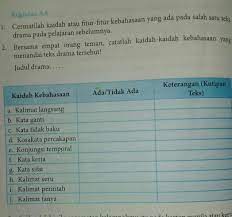 Kegiatan A4
1. Cermatilah kaidah atau fitur-fitur kebahasaan yang ada pada salah satu teks
drama pada pelajaran sebelumnya.
2. Bersama empat orang teman, catatlah kaidah-kaidah kebahasaan yang
menandai teks drama tersebut!
Judul drama: . . . .
Kaidah Kebahasaan Ada/Tidak Ada Keterangan (Kutipan Teks)
a. Kalimat langsung
b. Kata ganti
c. Kata tidak baku
d. Kosakata percakapan
e. Konjungsi temporal
f. Kata kerja
g. Kata sifat
h. Kalimat seru
i. Kalimat perintah
j. Kalimat tanya